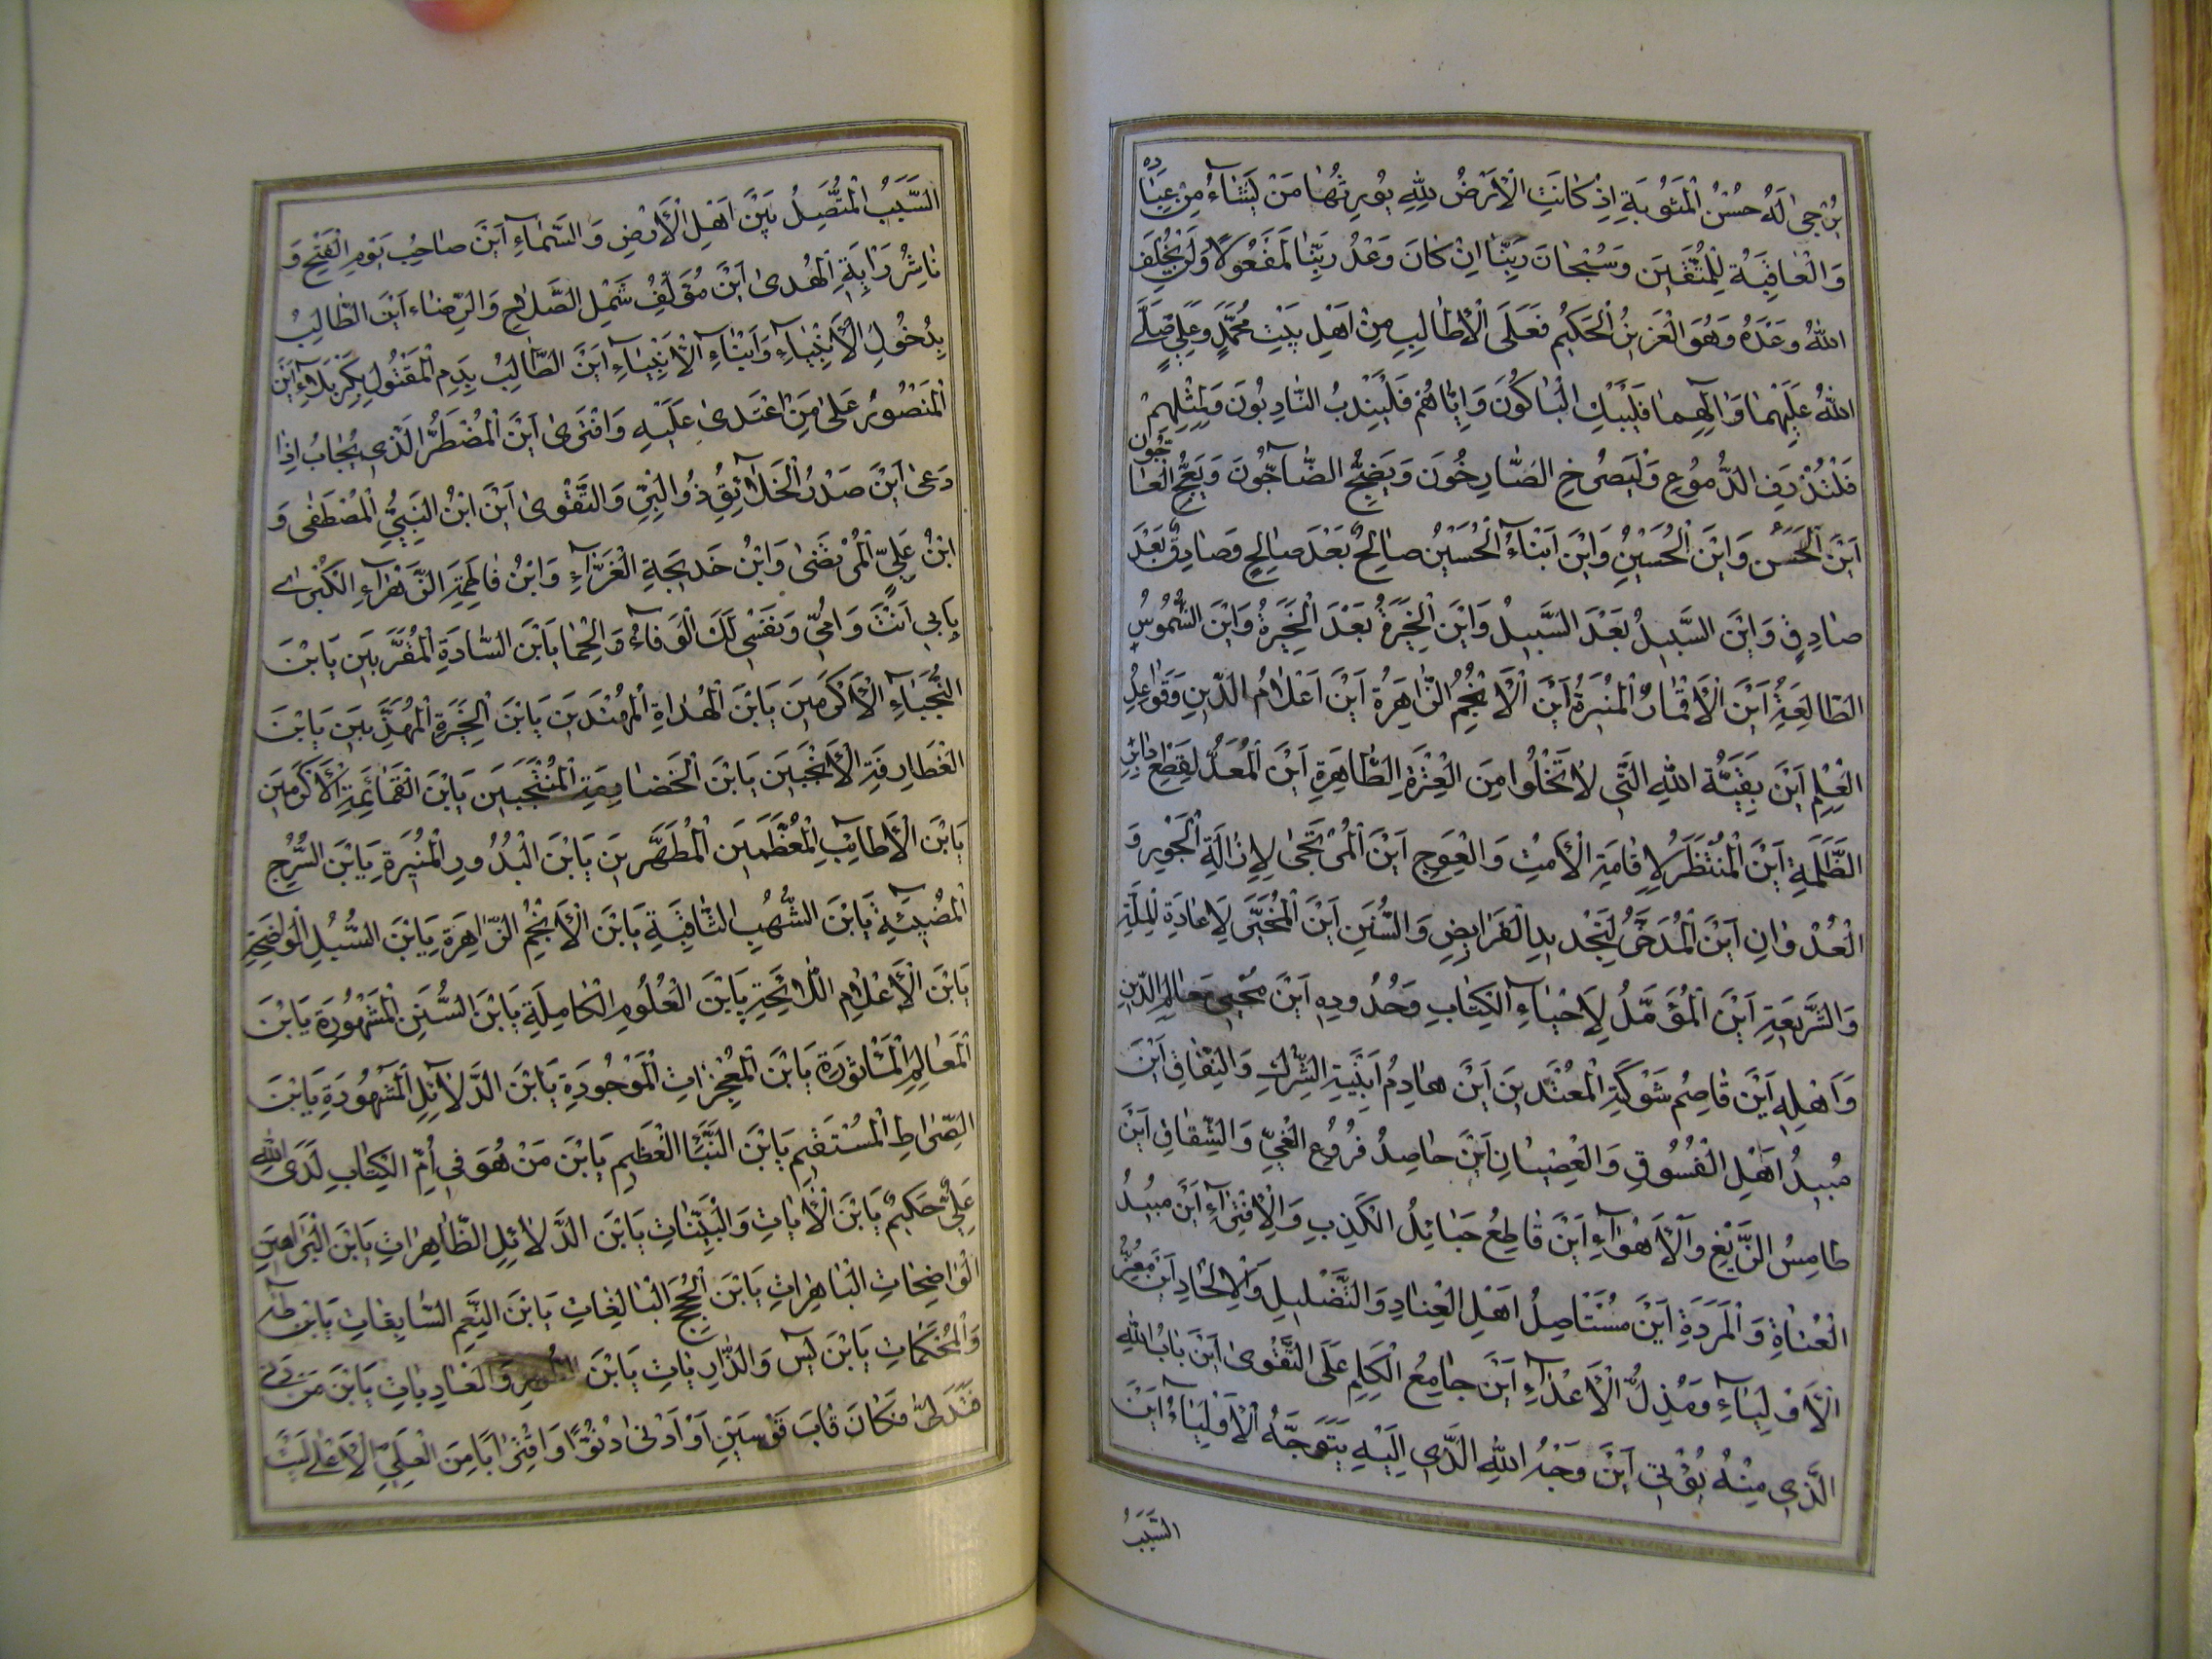 يُرْجىٰ لَهُ حُسْنُ الْمَثُوبَةِ اِذْ كٰانَتِ الْاَرْضُ لِلّٰهِ يُورِثُهٰا مَنْ يَشٰٓاءُ مِنْ عِبٰادِهِ
وَالْعٰاقِبَةُ لِلْمُتَّقٖينَ وَسُبْحٰانَ رَبِّنٰا اِنْ كٰانَ وَعْدُ رَبِّنٰا لَمَفْعُولًا وَلَنْ يُخْلِفَ
اللّٰهُ وَعْدَهُ وَهُوَ الْعَزٖيزُ الْحَكٖيمُ فَعَلَى الْاَطٰايِبِ مِنْ اَهْلِ بَيْتِ مُحَمَّدٍ وَعَلِيٍّ صَلَّى
اللّٰهُ عَلَيْهِمٰا وَاٰلِهِمٰا فَلْيَبْكِ الْبٰاكُونَ وَاِيّٰاهُمْ فَلْيَنْدُبُ النّٰادِبُونَ وَلِمِثْلِهِمْ
فَلْتُذْرَفِ الدُّمُوعِ وَلْيَصْرُخِ الصّٰارِخُونَ وَيَضِجُّ الضّٰآجُّونَ وَيَعِجُّ الْعٰاجُّونَ
اَيْنَ الْحَسَنُ وَاَيْنَ الْحُسَيْنُ وَاَيْنَ اَبْنٰٓاءُ الْحُسَيْنِ صٰالِحٌ بَعْدَ صٰالِحٍ وَصٰادِقٌ بَعْدَ
صٰادِقٍ وَاَيْنَ السَّبٖيلُ بَعْدَ السَّبٖيلِ وَاَيْنَ الْخِيَرَةُ بَعْدَ الْخِيَرَةِ وَاَيْنَ الشُّمُوسُ
الطّٰالِعَةُ اَيْنَ الْاَقْمٰارُ الْمُنٖيرَةُ اَيْنَ الْاَنْجُمُ الزّٰاهِرَةُ اَيْنَ اَعْلٰامُ الدّٖينِ وَقَوٰاعِدُ
الْعِلْمِ اَيْنَ بَقِيَّةُ اللّٰهِ الَّتٖي لٰا تَخْلُوا مِنَ الْعِتْرَةِ الطّٰاهِرَةِ اَيْنَ الْمُعَدُّ لِقَطْعِ دٰابِرِ
الظَّلَمَةِ اَيْنَ الْمُنْتَظَرُ لِاِقٰامَةِ الْاَمْتِ وَالْعِوَجِ اَيْنَ الْمُرْتَجٰى لِاِزٰالَةِ الْجَوْرِ وَ
الْعُدْوٰانِ اَيْنَ الْمُدَّخَرُ لِتَجْدٖيدِ الْفَرٰايِضِ وَالسُّنَنِ اَيْنَ الْمُتَخَيَّرُ لِاِعٰادَةِ الْمِلَّةِ
وَالشَّرٖيعَةِ اَيْنَ الْمُؤَمَّلُ لِاِحْيٰٓاءِ الْكِتٰابِ وَحُدُودِهِ اَيْنَ مُحْيٖي مَعٰالِمِ الدّٖينِ
وَاَهْلِهِ اَيْنَ قٰاصِمُ شَوْكَةِ الْمُعْتَدٖينَ اَيْنَ هٰادِمُ اَبْنِيَةِ الشِّرْكِ وَالنِّفٰاقِ اَيْنَ
مُبٖيدُ اَهْلِ الْفُسُوقِ وَالْعِصْيٰانِ اَيْنَ حٰاصِدُ فُرُوعِ الْغَيِّ وَالشِّقٰاقِ اَيْنَ
طٰامِسُ الزَّيْغِ وَالْاَهْوٰٓاءِ اَيْنَ قٰاطِعُ حَبٰائِلُ الْكَذِبِ وَالْاِفْتِرٰٓاءِ اَيْنَ مُبٖيدُ
الْعُتٰاةِ وَالْمَرَدَةِ اَيْنَ مُسْتَاْصِلُ اَهْلِ الْعِنٰادِ وَالتَّضْلٖيلِ وَالْاِلْحٰادِ اَيْنَ مُعِزُّ
الْاَوْلِيٰٓاءِ وَمُذِلُّ الْاَعْدٰٓاءِ اَيْنَ جٰامِعُ الْكَلِمِ عَلَى التَّقْوىٰ اَيْنَ بٰابُ اللّٰهِ
الَّذٖي مِنْهُ يُؤْتٰى اَيْنَ وَجْهُ اللّٰهِ الَّذٖي اِلَيْهِ يَتَوَجَّهُ الْاَوْلِيٰٓاءُ اَيْنَ
السَّبَبُ
السَّبَبُ الْمُتَّصِلُ بَيْنَ اَهْلِ الْاَرْضِ وَالسَّمٰٓاءِ اَيْنَ صٰاحِبُ يَوْمِ الْفَتْحِ وَ
نٰاشِرُ رٰايَةِ الْهُدىٰ اَيْنَ مُؤَلِّفُ شَمْلِ الصَّلٰاحِ وَالرِّضٰاءِ اَيْنَ الطّٰالِبُ
بِذُحُولِ الْاَنْبِيٰٓاءِ وَاَبْنٰٓاءِ الْاَنْبِيٰٓاءِ اَيْنَ الطّٰالِبُ بِدَمِ الْمَقْتُولِ بِكَرْبَلٰٓاءِ اَيْنَ
الْمَنْصُورُ عَلىٰ مَنِ اعْتَدىٰ عَلَيْهِ وَافْتَرىٰ اَيْنَ الْمُضْطَرُّ الَّذٖي يُجٰابُ اِذٰا
دَعىٰ اَيْنَ صَدْرُ الْخَلٰٓائِقِ ذُو الْبِرِّ وَالتَّقْوىٰ اَيْنَ ابْنُ النَّبِيِّ الْمُصْطَفٰى وَ
ابْنُ عَلِيٍّ الْمُرْتَضٰى وَابْنُ خَدٖيجَةِ الْغَرّٰٓاءِ وَابْنُ فٰاطِمَةِ الزَّهْرٰٓاءِ الْكُبْرٰى
بِاَبٖي اَنْتَ وَاُمّٖي وَنَفْسٖي لَكَ الْوَفٰاءُ وَالْحِمٰا يَابْنَ السّٰادَةِ الْمُقَرَّبٖينَ يَابْنَ
النُّجَبٰاءِ الْاَكْرَمٖينَ يَابْنَ الْهُدٰاةِ الْمُهْتَدٖينَ يَابْنَ الْخِيَرَةِ الْمُهَذَّبٖينَ يَابْنَ
الْغَطٰارِفَةِ الْاَنْجَبٖينَ يَابْنَ الْخَضٰارِمَةِ الْمُنْتَجَبٖينَ يَابْنَ الْقَمٰاقِمَةِ الْاَكْرَمٖينَ
يَابْنَ الْاَطٰائِبِ الْمُعَظَّمٖينَ الْمُطَهَّرٖينَ يَابْنَ الْبُدُورِ الْمُنٖيرَةِ يَابْنَ السُّرُجِ
الْمُضٖيئَةِ يَابْنَ الشُّهُبِ الثّٰاقِبَةِ يَابْنَ الْاَنْجُمِ الزّٰاهِرَةِ يَابْنَ السُّبُلِ الْوٰاضِحَةِ
يَابْنَ الْاَعْلٰامِ اللّٰائِحَةِ يَابْنَ الْعُلُومِ الْكٰامِلَةِ يَابْنَ السُّنَنِ الْمَشْهُورَةِ يَابْنَ
الْمَعٰالِمِ الْمَأْثُورَةِ يَابْنَ الْمُعْجِزٰاتِ الْمَوْجُودَةِ يَابْنَ الدَّلٰٓائِلِ الْمَشْهُودَةِ يَابْنَ
الصِّرٰاطِ الْمُسْتَقٖيمِ يَابْنَ النَّبَأِ الْعَظٖيمِ يَابْنَ مَنْ هُوَ فٖي اُمِّ الْكِتٰابِ لَدَى اللّٰهِ
عَلِيٌّ حَكٖيمٌ يَابْنَ الْاٰيٰاتِ وَالْبَيِّنٰاتِ يَابْنَ الدَّلٰائِلِ الظّٰاهِرٰاتِ يَابْنَ الْبَرٰاهٖينِ
الْوٰاضِحٰاتِ الْبٰاهِرٰاتِ يَابْنَ الْحُجَجِ الْبٰالِغٰاتِ يَابْنَ النِّعَمِ السّٰابِغٰاتِ يَابْنَ طٰهٰ
وَالْمُحْكَمٰاتِ يَابْنَ يٰسٓ وَالذّٰارِيٰاتِ يَابْنَ الطُّورِ وَالْعٰادِيٰاتِ يَابْنَ مَنْ دَنٰى
فَتَدَلّٰى فَكٰانَ قٰابَ قَوْسَيْنِ اَوْ اَدْنىٰ دُنُوًّا وَاقْتِرٰابًا مِنَ الْعَلِيِّ الْاَعْلٰى لَيْتَ